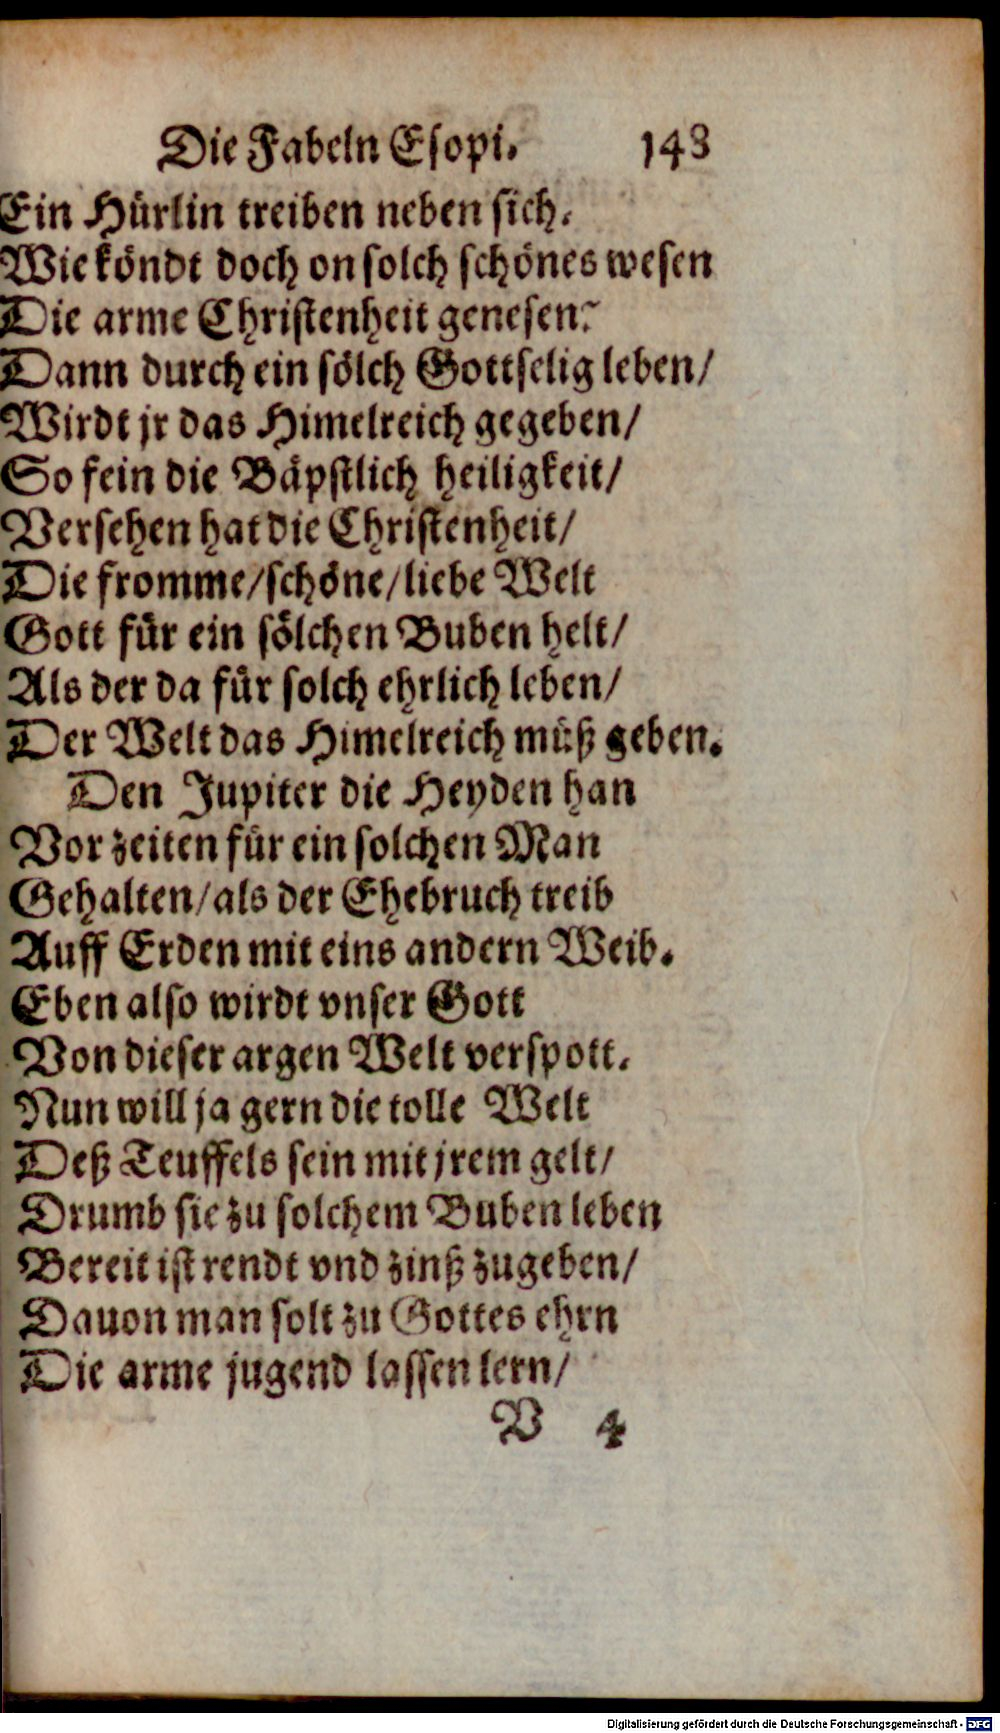 Die Fabeln Esopi. 143
Ein Hürlin treiben neben sich.
Wie köndt doch on solch schönes wesen
Die arme Christenheit genesen?
Dann durch ein sölch Gottselig leben/
Wirdt jr das Himelreich gegeben/
So fein die Bäpstlich heiligkeit/
Versehen hat die Christenheit/
Die fromme/schöne/liebe Welt
Gott für ein sölchen Buben helt/
Als der da für solch ehrlich leben/
Der Welt das Himelreich müß geben.
Den Jupiter die Heyden han
Vor zeiten für ein solchen Man
Gehalten/als der Ehebruch treib
Auff Erden mit eins andern Weib.
Eben also wirdt vnser Gott
Von dieser argen Welt verspott.
Nun will ja gern die tolle Welt
Deß Teuffels sein mit jrem gelt/
Drumb sie zu solchem Buben leben
Bereit ist rendt vnd zinß zugeben/
Dauon man solt zu Gottes ehrn
Die arme jugend lassen lern/
V 4
Digitalisierung gefördert durch die Deutsche Forschungsgemeinschaft - DFG